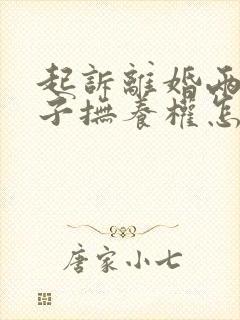 起訴離婚兩
子撫養權怎
唐家小七